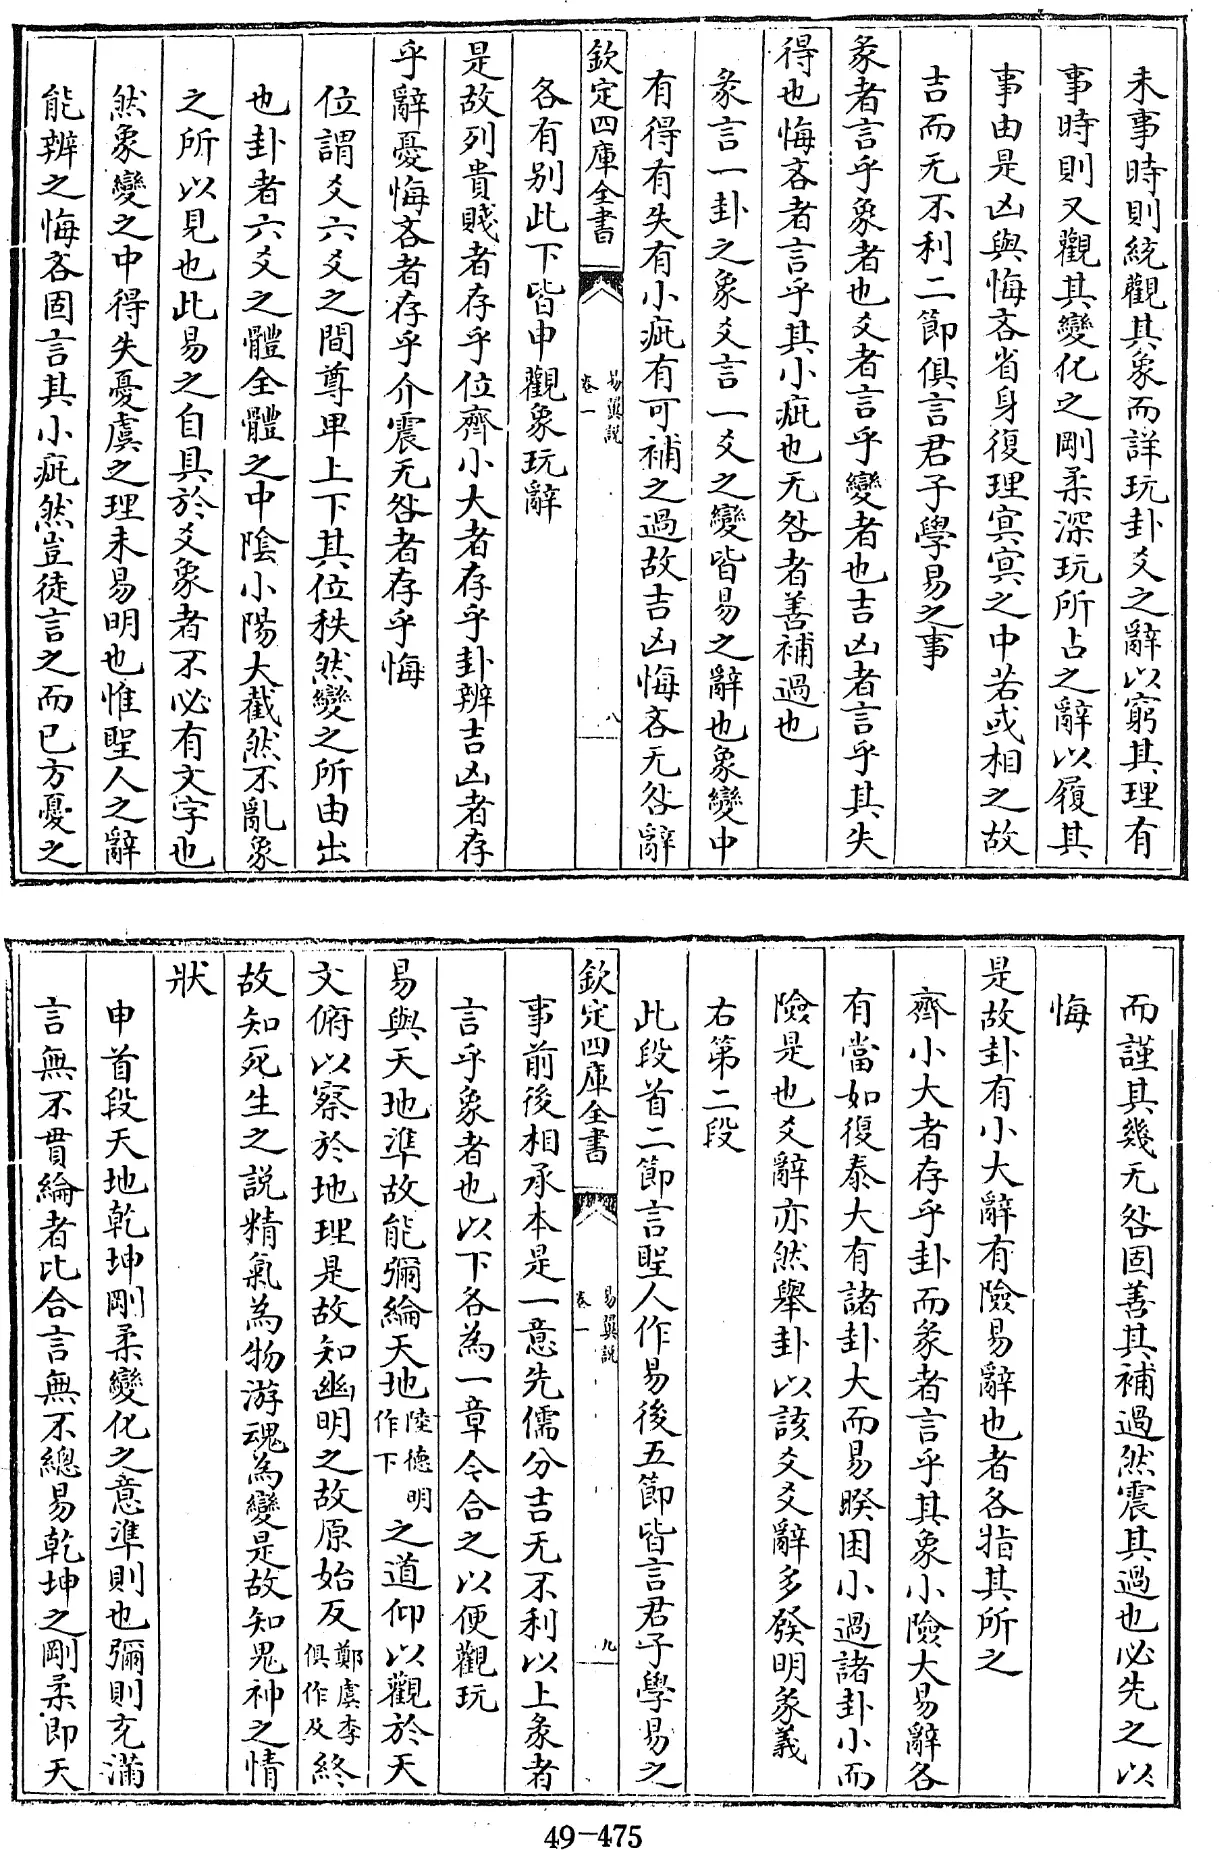 未事時則統觀其象而詳玩卦爻之辭以窮其理有
事時則又觀其變化之剛柔深玩所占之辭以履其
事由是凶與悔吝省身復理㝠㝠之中若或相之故
吉而无不利二節俱言君子學易之事
彖者言乎象者也爻者言乎變者也吉凶者言乎其失
得也悔吝者言乎其小疵也无咎者善補過也
彖言一卦之象爻言一爻之變皆易之辭也象變中
有得有失有小疵有可補之過故吉凶悔吝无咎辭
欽定四庫全書
易翼説
卷一
八
各有别此下皆申觀象玩辭
是故列貴賤者存乎位齊小大者存乎卦辨吉凶者存
乎辭憂悔吝者存乎介震无咎者存乎悔
位謂爻六爻之間尊卑上下其位秩然變之所由出
也卦者六爻之體全體之中陰小陽大截然不亂象
之所以見也此易之自具於爻象者不必有文字也
然象變之中得失憂虞之理未易明也惟聖人之辭
能辨之悔吝固言其小疵然豈徒言之而已方憂之
而謹其幾无咎固善其補過然震其過也必先之以
悔
是故卦有小大辭有險易辭也者各指其所之
齊小大者存乎卦而彖者言乎其象小險大易辭各
有當如復泰大有諸卦大而易睽困小過諸卦小而
險是也爻辭亦然舉卦以該爻爻辭多發明彖義
右第二段
此段首二節言聖人作易後五節皆言君子學易之
欽定四庫全書
易翼説
卷一
九
事前後相承本是一意先儒分吉无不利以上彖者
言乎象者也以下各為一章令合之以便觀玩
易與天地準故能彌綸天地陸德明作下之道仰以觀於天
文俯以察於地理是故知幽明之故原始反鄭虞李俱作及終
故知死生之説精氣為物游魂為變是故知鬼神之情
狀
申首段天地乾坤剛柔變化之意準則也彌則充滿
言無不貫綸者比合言無不總易乾坤之剛柔即天
49-475